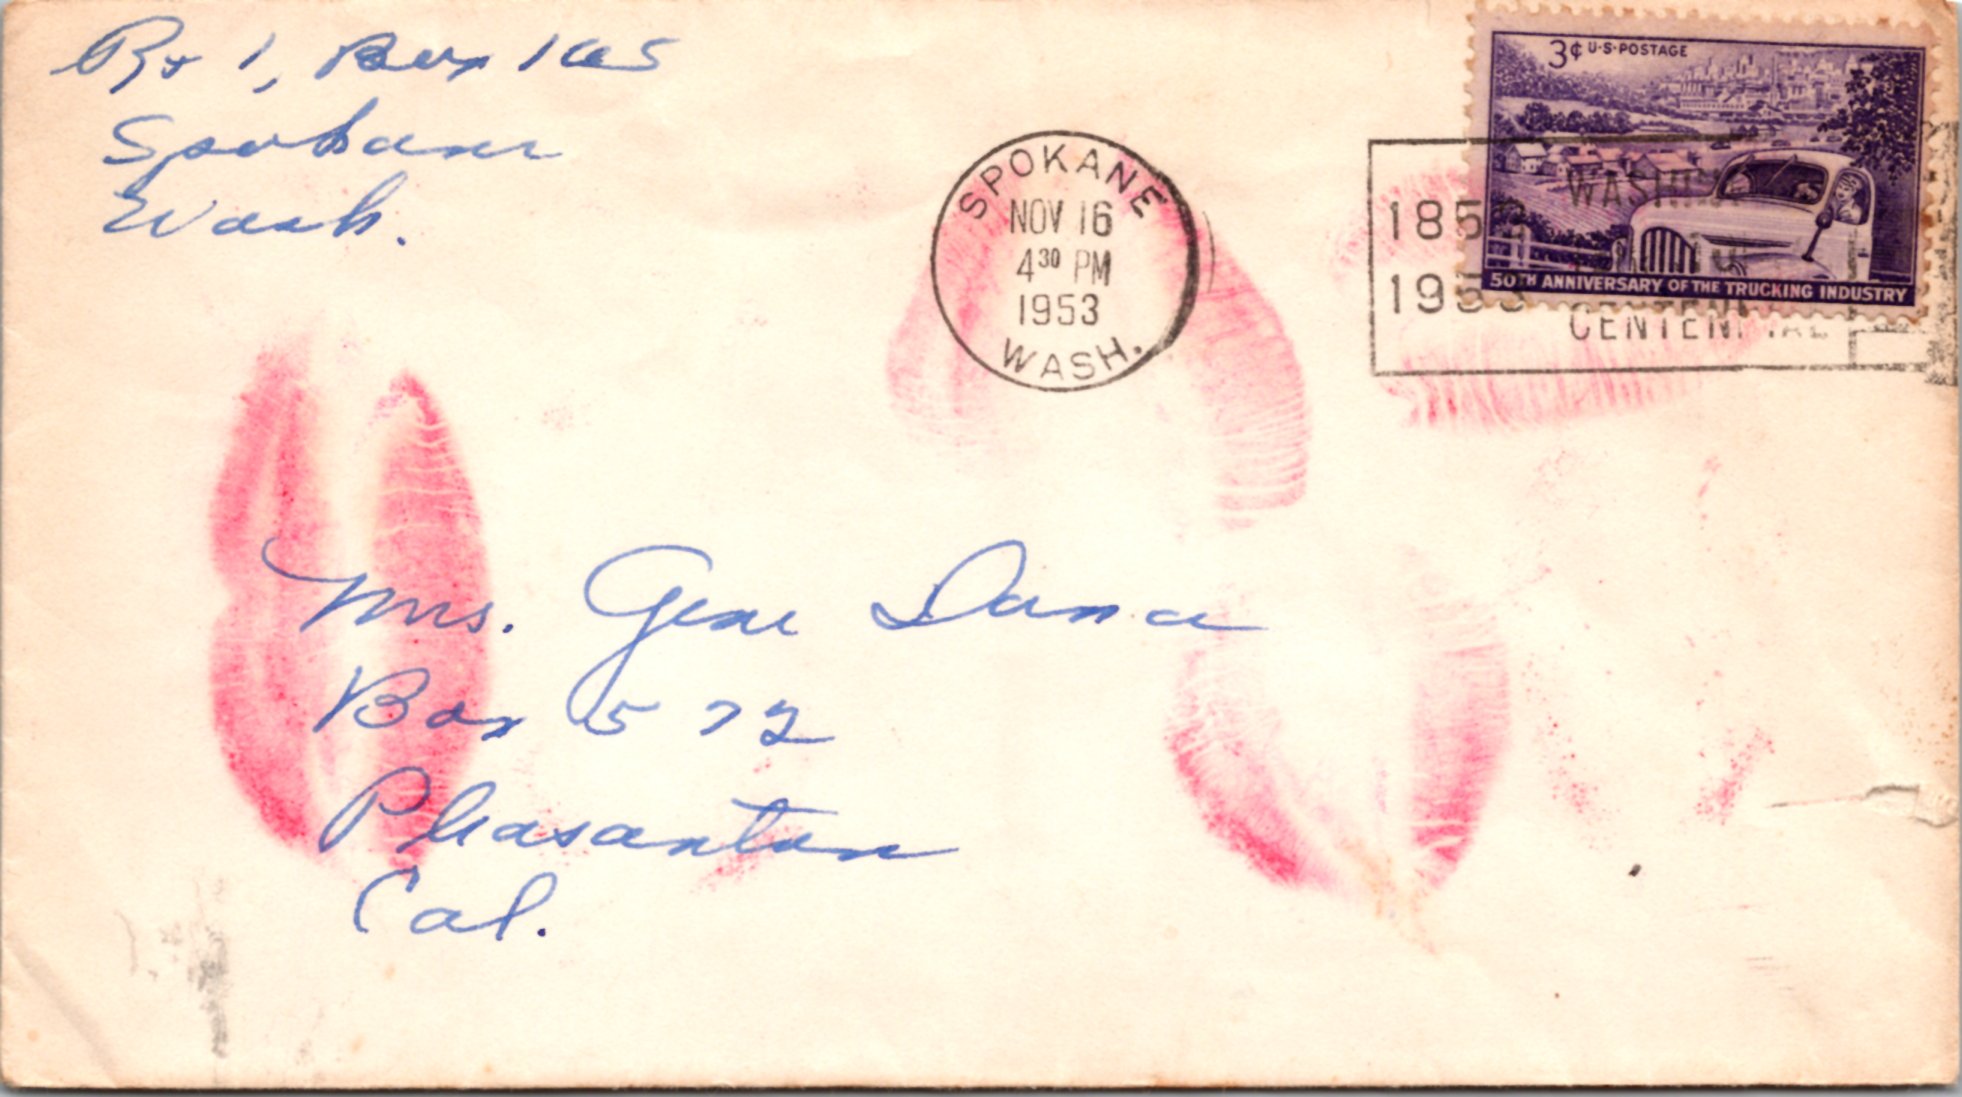 Rt 1, Box 165
Spokane
Wash.
SPOKANE
NOV 16
4 30 PM
1953
WASH.
3¢ U·S·POSTAGE
50TH ANNIVERSARY OF THE TRUCKING INDUSTRY
1853
1953
CENTENNIAL
Mrs. Gene Dana
Box 572
Pleasanton
Cal.